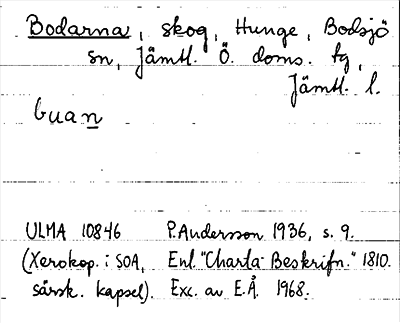 Bodarna, skog, Hunge, Bodsjö
sn, Jämtl. Ö. doms. tg,
Jämtl. l.
buan
ULMA 10846 P. Andersson 1936, s. 9.
(Xerokop. i SOA, Enl. "Charta-Beskrifn." 1810.
särsk. kapsel). Exc. av E.Å. 1968.